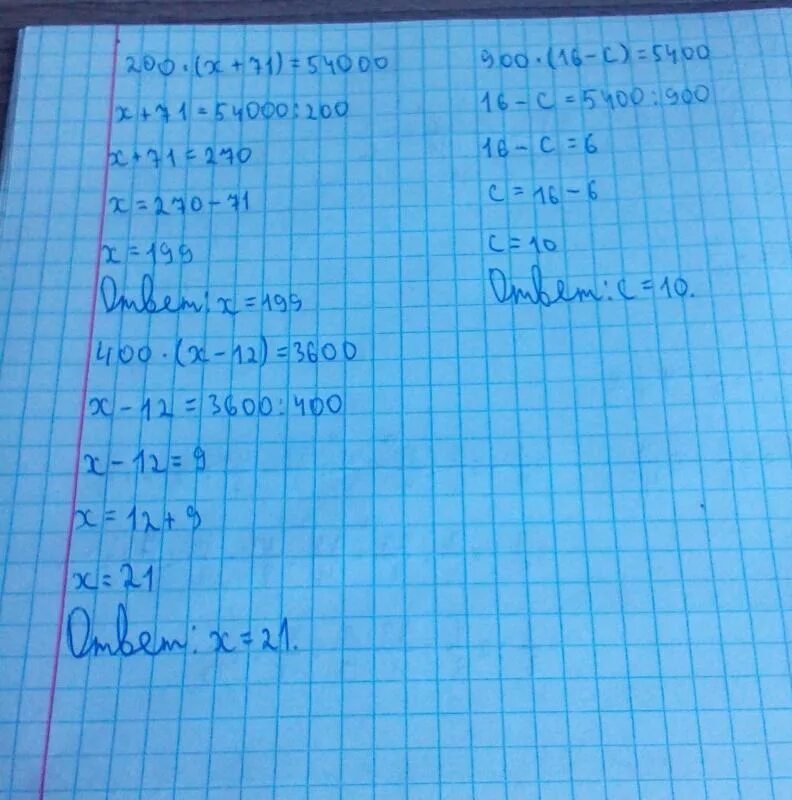 200·(x+71)=54000
x+71=54000:200
x+71=270
x=270-71
x=199
Ответ: x=199
400·(x-12)=3600
x-12=3600:400
x-12=9
x=12+9
x=21
Ответ: x=21.
900·(16-c)=5400
16-c=5400:900
16-c=6
c=16-6
c=10
Ответ: c=10.